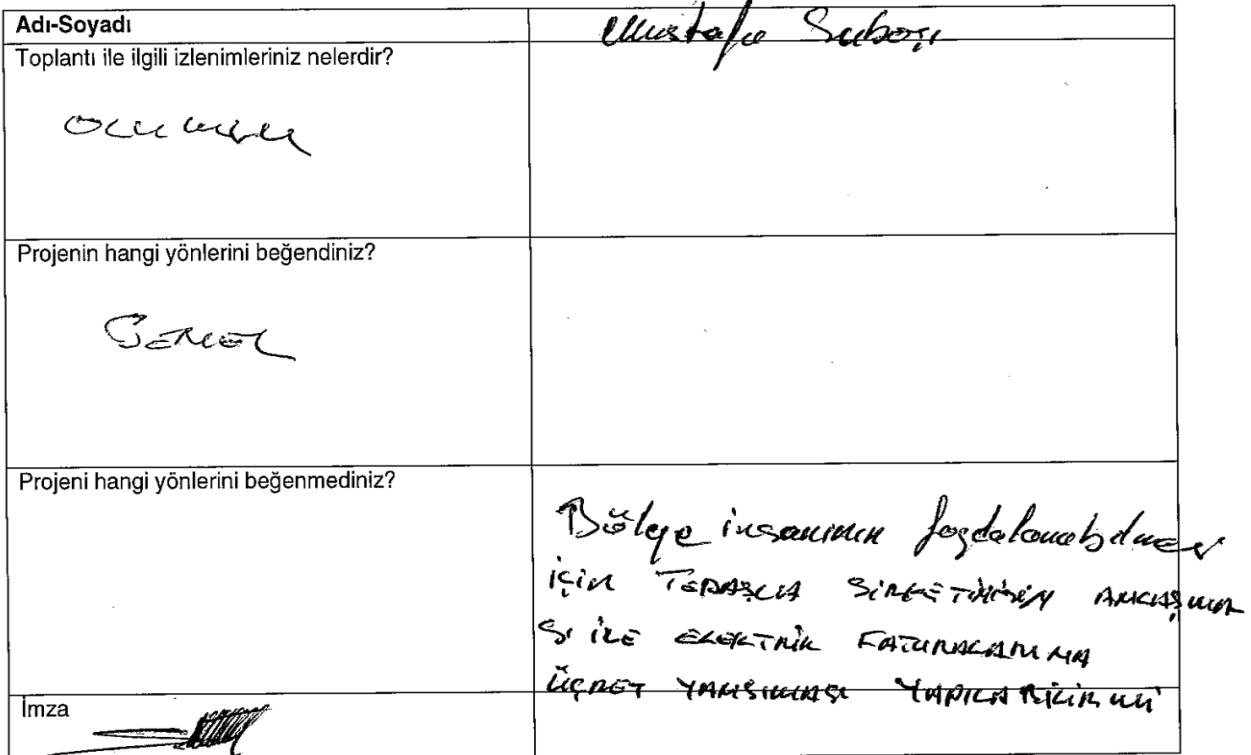 Adı-Soyadı
Mustafa Subaşı
Toplantı ile ilgili izlenimleriniz nelerdir?
OLUMLU
Projenin hangi yönlerini beğendiniz?
GENEL
Projeni hangi yönlerini beğenmediniz?
Bölge insanının faydalanabilmesi
İÇİN TEDAŞLA ŞİRKETİNİZİN ANLAŞMA
SI İLE ELEKTRİK FATURALARINA
ÜCRET YANSIMASI YAPILABİLİR Mİ
İmza